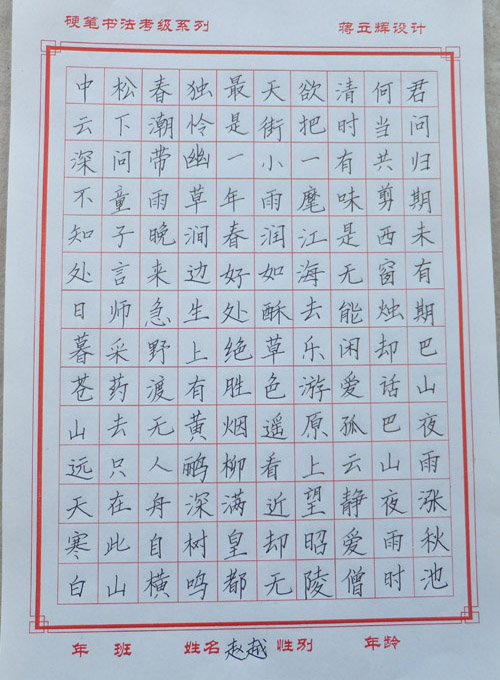 硬笔书法考级系列 蒋立辉设计
君问归期未有期巴山夜雨涨秋池
何当共剪西窗烛却话巴山夜雨时
清时有味是无能闲爱孤云静爱僧
欲把一麾江海去乐游原上望昭陵
天街小雨润如酥草色遥看近却无
最是一年春好处绝胜烟柳满皇都
独怜幽草涧边生上有黄鹂深树鸣
春潮带雨晚来急野渡无人舟自横
松下问童子言师采药去只在此山
中云深不知处日暮苍山远天寒白
年 班 姓名 赵越 性别 年龄